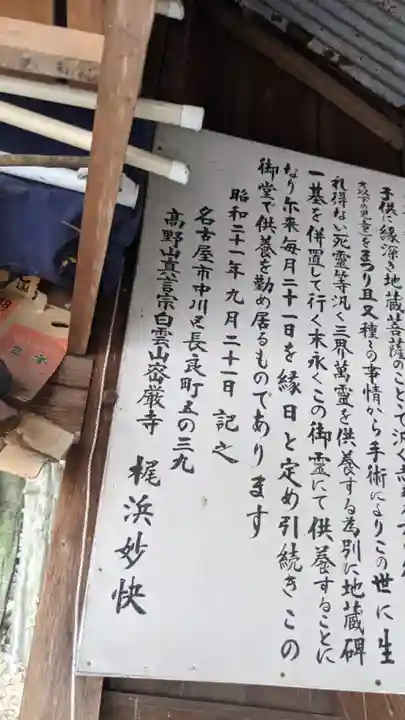 子供に縁深き地蔵菩薩のことで
才以下の児童)をまつり且又種々の事情から手術によりこの世に生
れ得ない死霊等汎く三界萬霊を供養する為別に地蔵碑
一基を併置して行く末永くこの御霊にて供養することに
なり尓来毎月二十一日を縁日と定め引続きこの
御堂で供養を勤め居るものであります
昭和二十一年九月二十一日 記之
名古屋市中川区長良町五の三九
高野山真言宗白雲山密厳寺 梶浜妙快